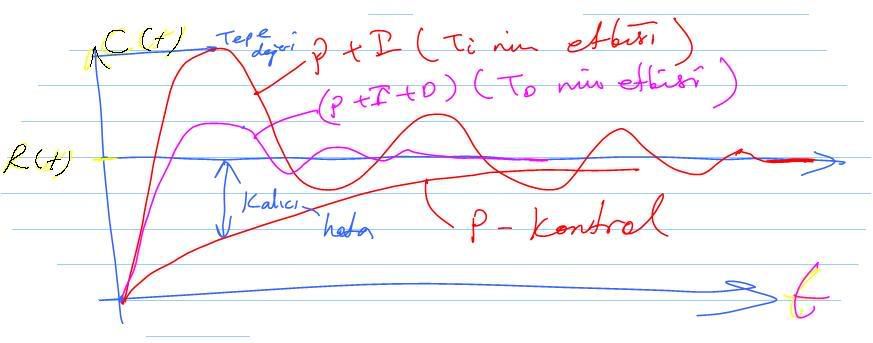 C(t)
Tepe
değeri
P + I (Ti nin etkisi)
(P+I+D) (TD nin etkisi)
R(t)
Kalıcı
hata
P - Kontrol
t